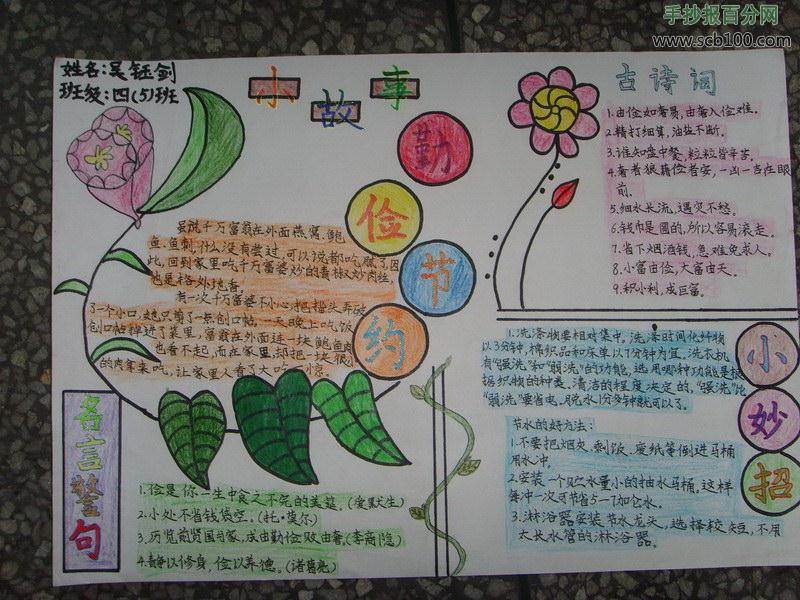 手抄报百分网
www.scb100.com
姓名:吴钰剑
班级:四(5)班
小故事
勤俭节约
虽说千万富翁在外面燕窝、鲍
鱼、鱼刺,什么没有尝过,可以说都吃腻了,因
此,回到家里吃千万富婆炒的青椒炒肉丝,
也是格外地香。
有一次千万富婆不小心把指头弄破
了一个小口,她只剪了一点创口帖,一天晚上吃饭
创口帖掉进了菜里,富翁在外面连一块鲍鱼肉
也看不起,而在家里,却把一块很小
的肉拿来吃,让家里人看了大吃一惊。
名言警句
1.俭是你一生中食之不完的美筵。(爱默生)
2.小处不省钱袋空。(托·莫尔)
3.历览前贤国与家,成由勤俭败由奢(李商隐)
4.静以修身,俭以养德。(诸葛亮)
古诗词
1.由俭如奢易,由奢入俭难。
2.精打细算,油盐不断。
3.谁知盘中餐,粒粒皆辛苦。
4.奢者狼藉俭者安,一凶一吉在眼
前。
5.细水长流,遇灾不愁。
6.钱币是圆的,所以容易滚走。
7.省下烟酒钱,急难免求人。
8.小富由俭,大富由天。
9.积小利,成巨富。
小妙招
1.洗涤物要相对集中。洗涤时间化纤物
以3分钟,棉织品和床单以7分钟为宜。洗衣机
有“强洗”和“弱洗”的功能,选用哪种功能是根
据织物的种类、清洁的程度决定的,“强洗”比
“弱洗”要省电。脱水1分多钟就可以了。
节水的好方法:
1.不要把烟灰、剩饭、废纸等倒进马桶
用水冲。
2.安装一个贮水量小的抽水马桶,这样
每冲一次可节省5-7加仑水。
3.淋浴器安装节水龙头,选择校短,不用
太长水管的淋浴器。